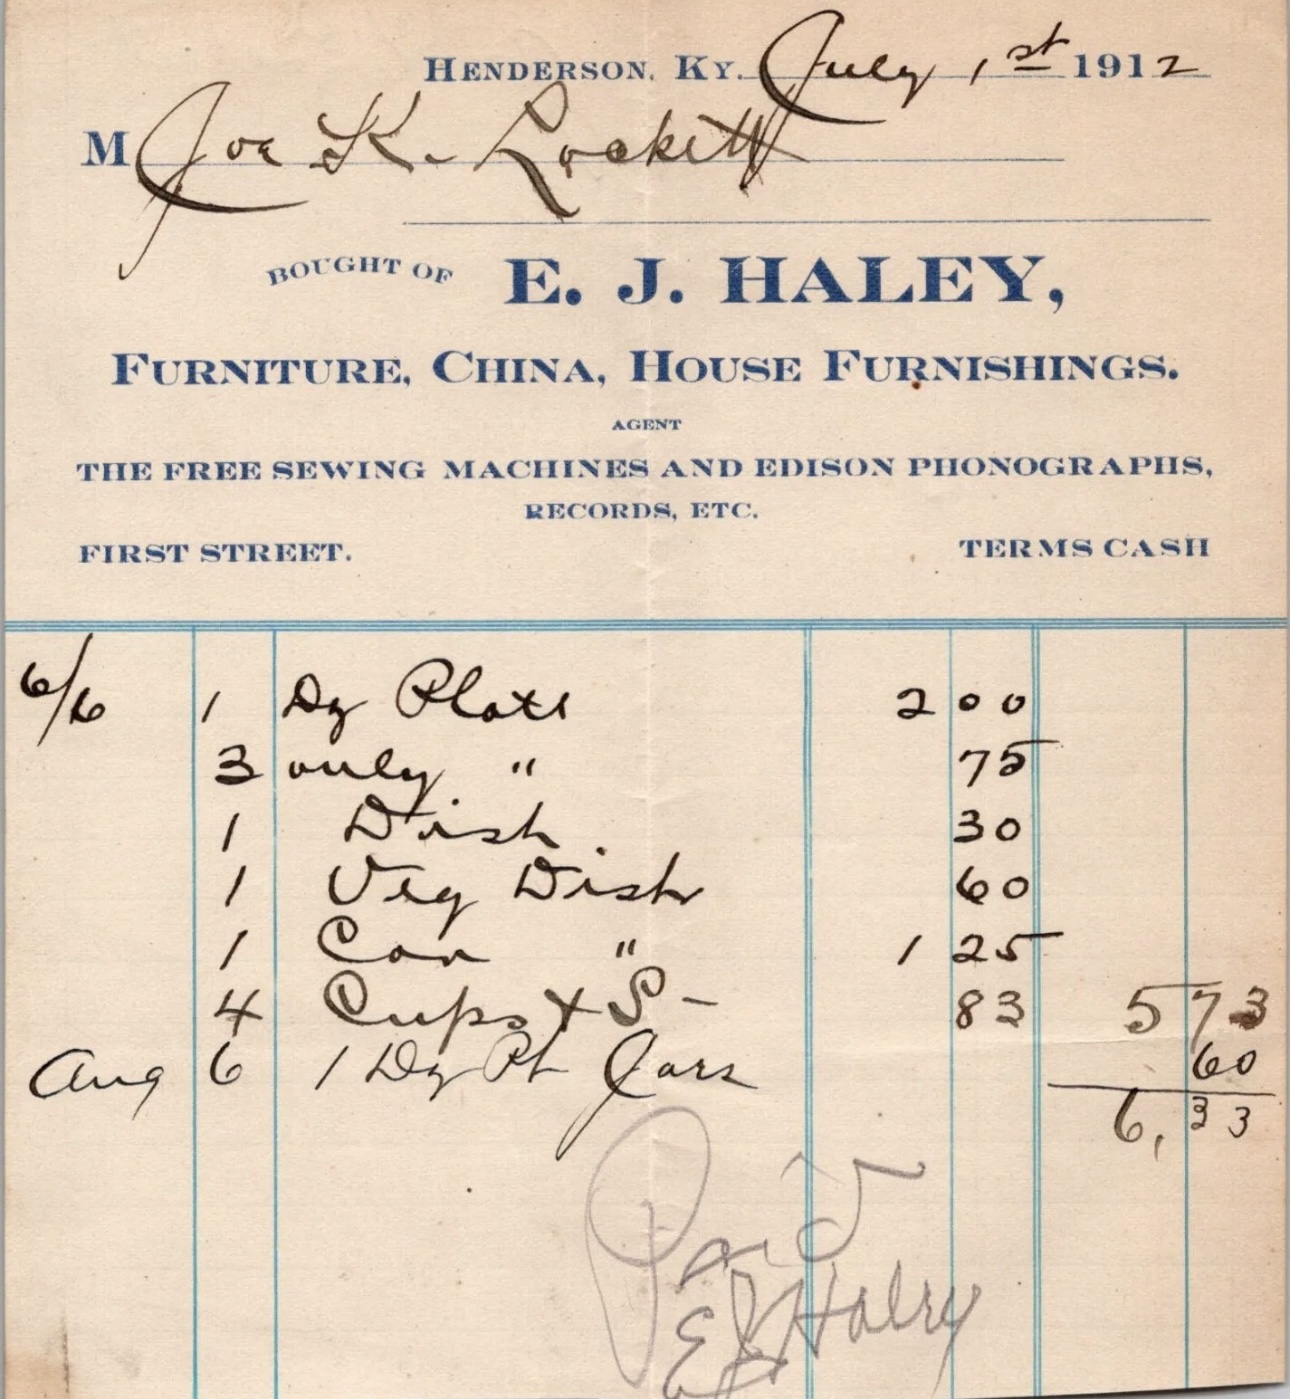 HENDERSON, KY. July 1st 1912
M Joe K. Lockett
BOUGHT OF E. J. HALEY,
FURNITURE, CHINA, HOUSE FURNISHINGS.
AGENT
THE FREE SEWING MACHINES AND EDISON PHONOGRAPHS,
RECORDS, ETC.
FIRST STREET. TERMS CASH
6/6 1 Dz Plats 2 00
3 only " 75
1 Dish 30
1 Veg Dish 60
1 Cov " 1 25
4 Cups + S - 83 5 73
Aug 6 1 Dz Pt Jars 60
6,33
Paid
EJ Halry